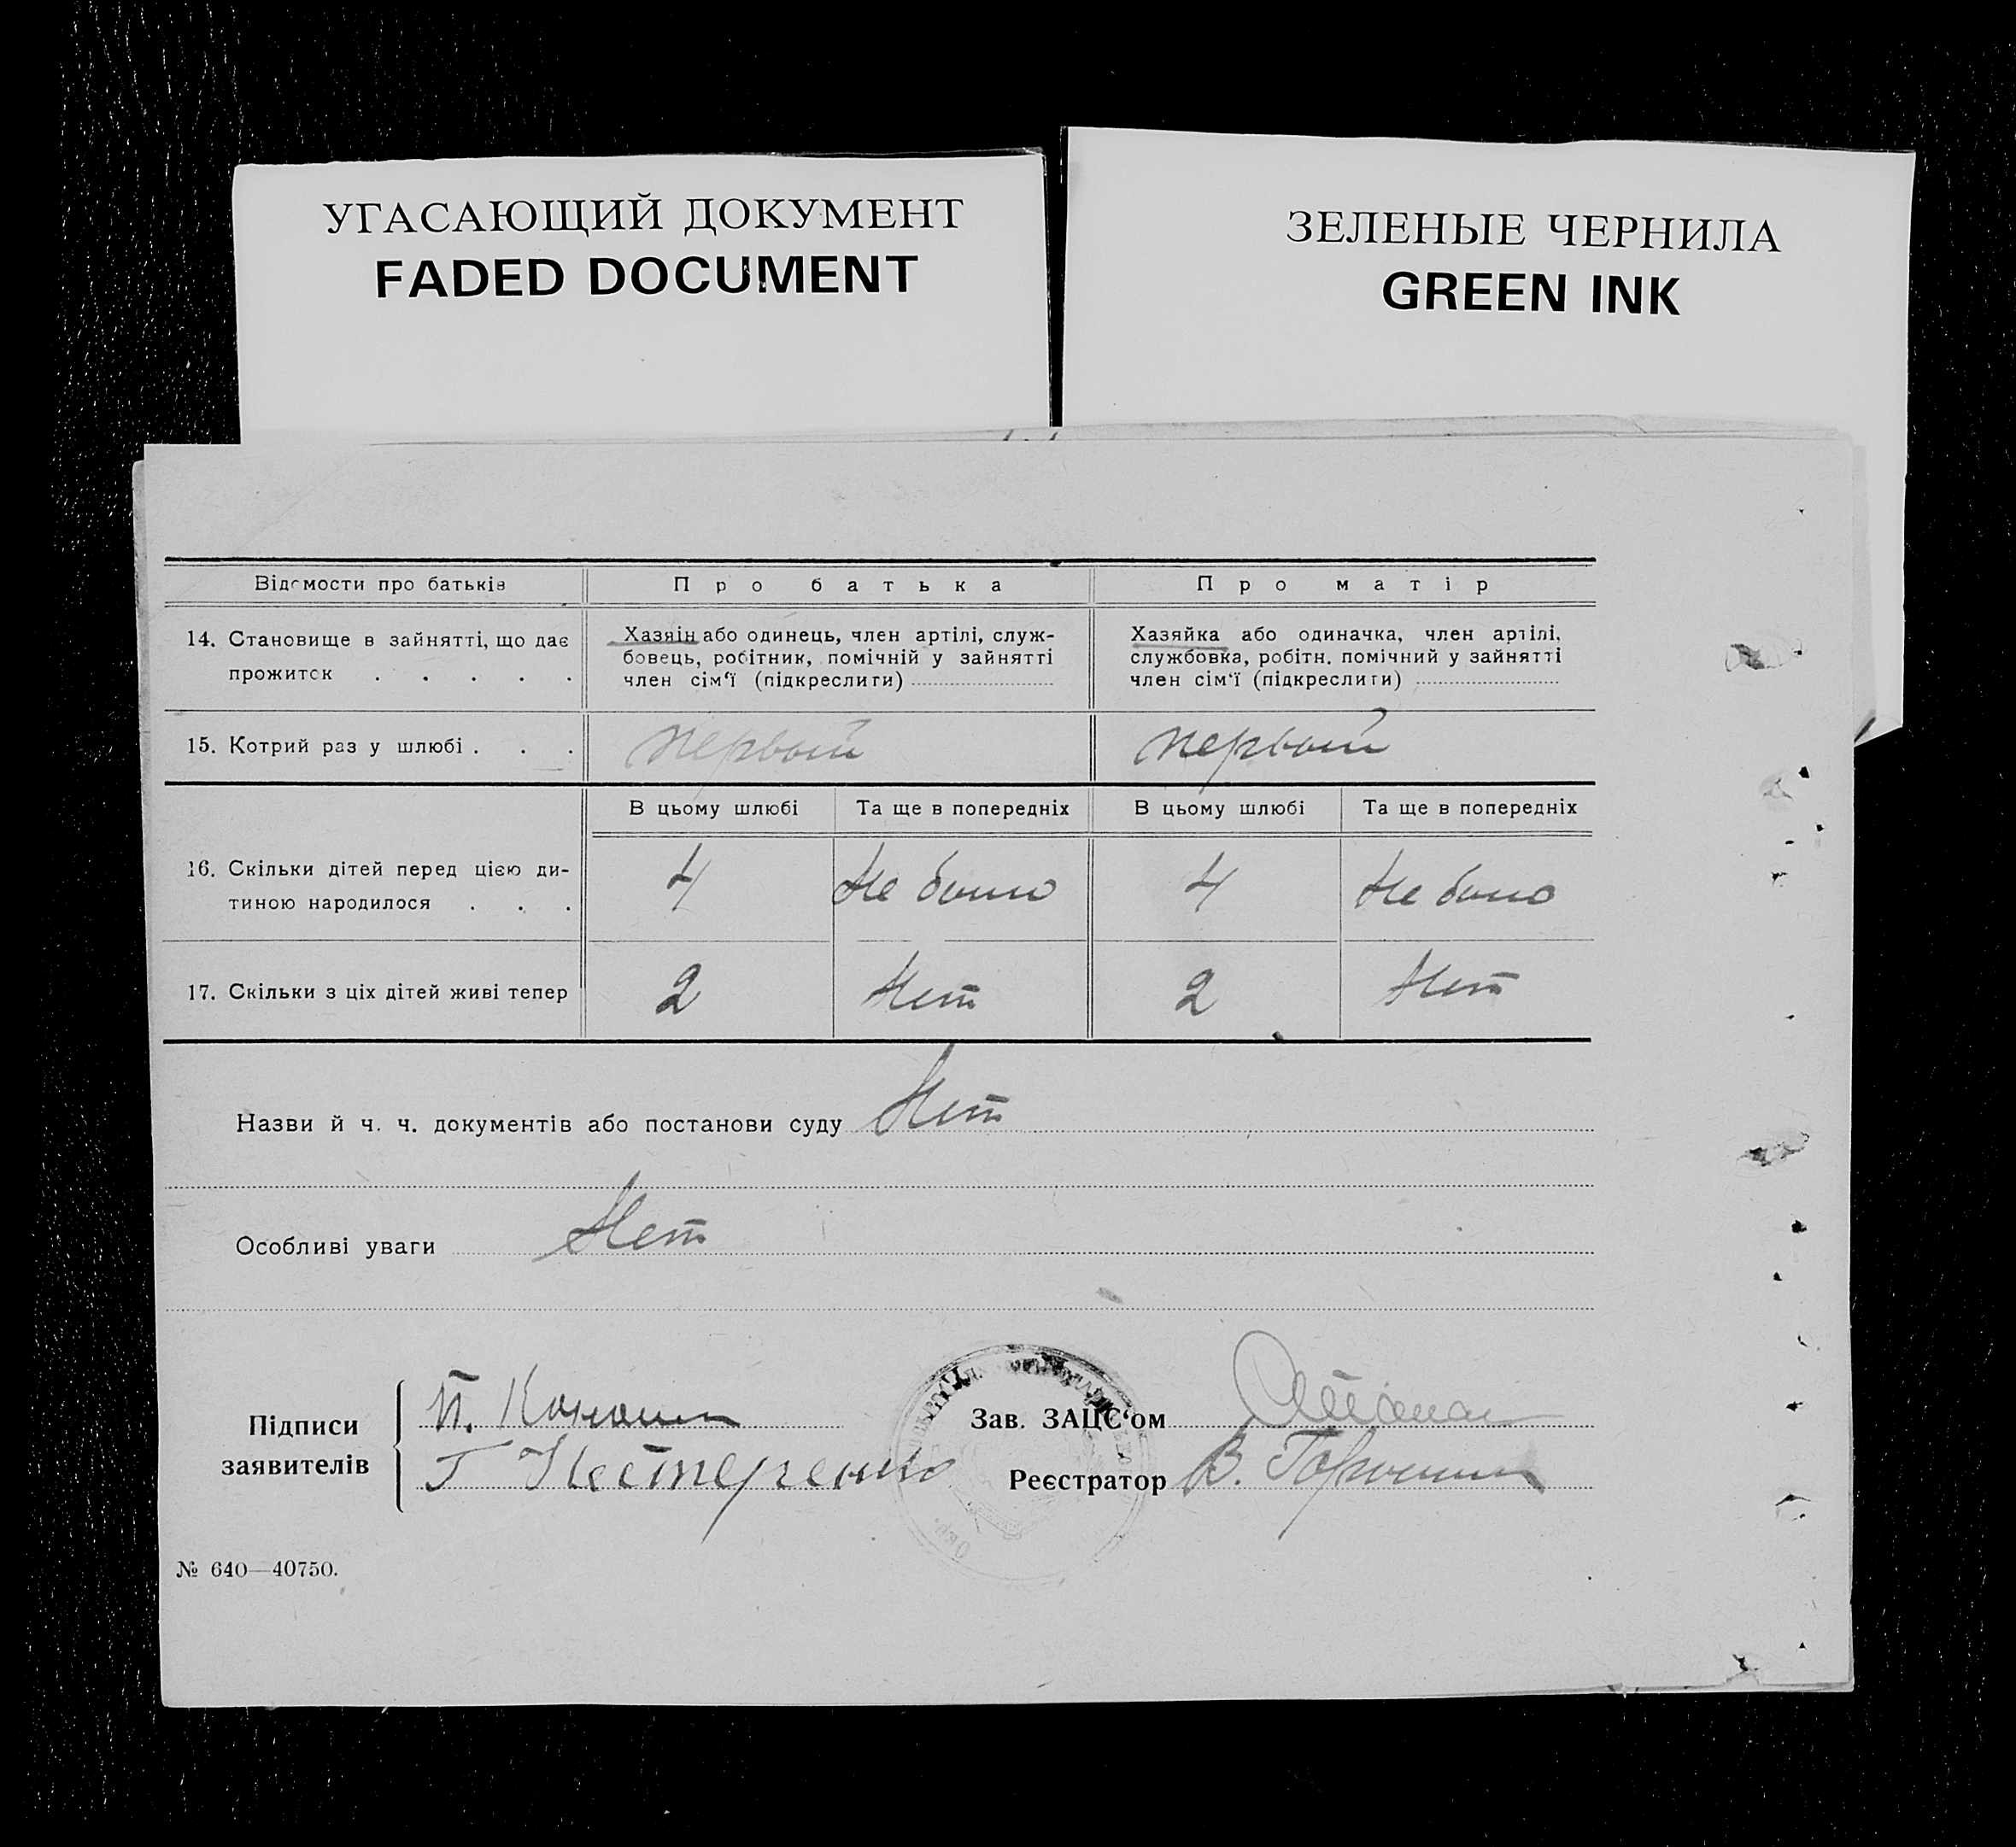 УГАСАЮЩИЙ ДОКУМЕНТ
FADED DOCUMENT
ЗЕЛЕНЫЕ ЧЕРНИЛА
GREEN INK
Відомости про батьків
Про батька
Про матір
14. Становище в зайнятті, що дає
прожиток . . . . .
Хазяїн або одинець, член артілі, служ-
бовець, робітник, помічній у зайнятті
член сім‘ї (підкреслити)
Хазяйка або одиначка, член артілі,
службовка, робітн. помічний у зайнятті
член сім‘ї (підкреслити)
15. Котрий раз у шлюбі . . .
первый
первый
В цьому шлюбі
Та ще в попередніх
В цьому шлюбі
Та ще в попередніх
16. Скільки дітей перед цією ди-
тиною народилося . . .
4
Не было
4
Не было
17. Скільки з ціх дітей живі тепер
2
Нет
2
Нет
Назви й ч. ч. документів або постанови суду Нет
Особливі уваги Нет
Підписи
заявителів
П.
Г Нестеренко
Зав. ЗАЦС‘ом
Реєстратор В.
№ 640—40750.